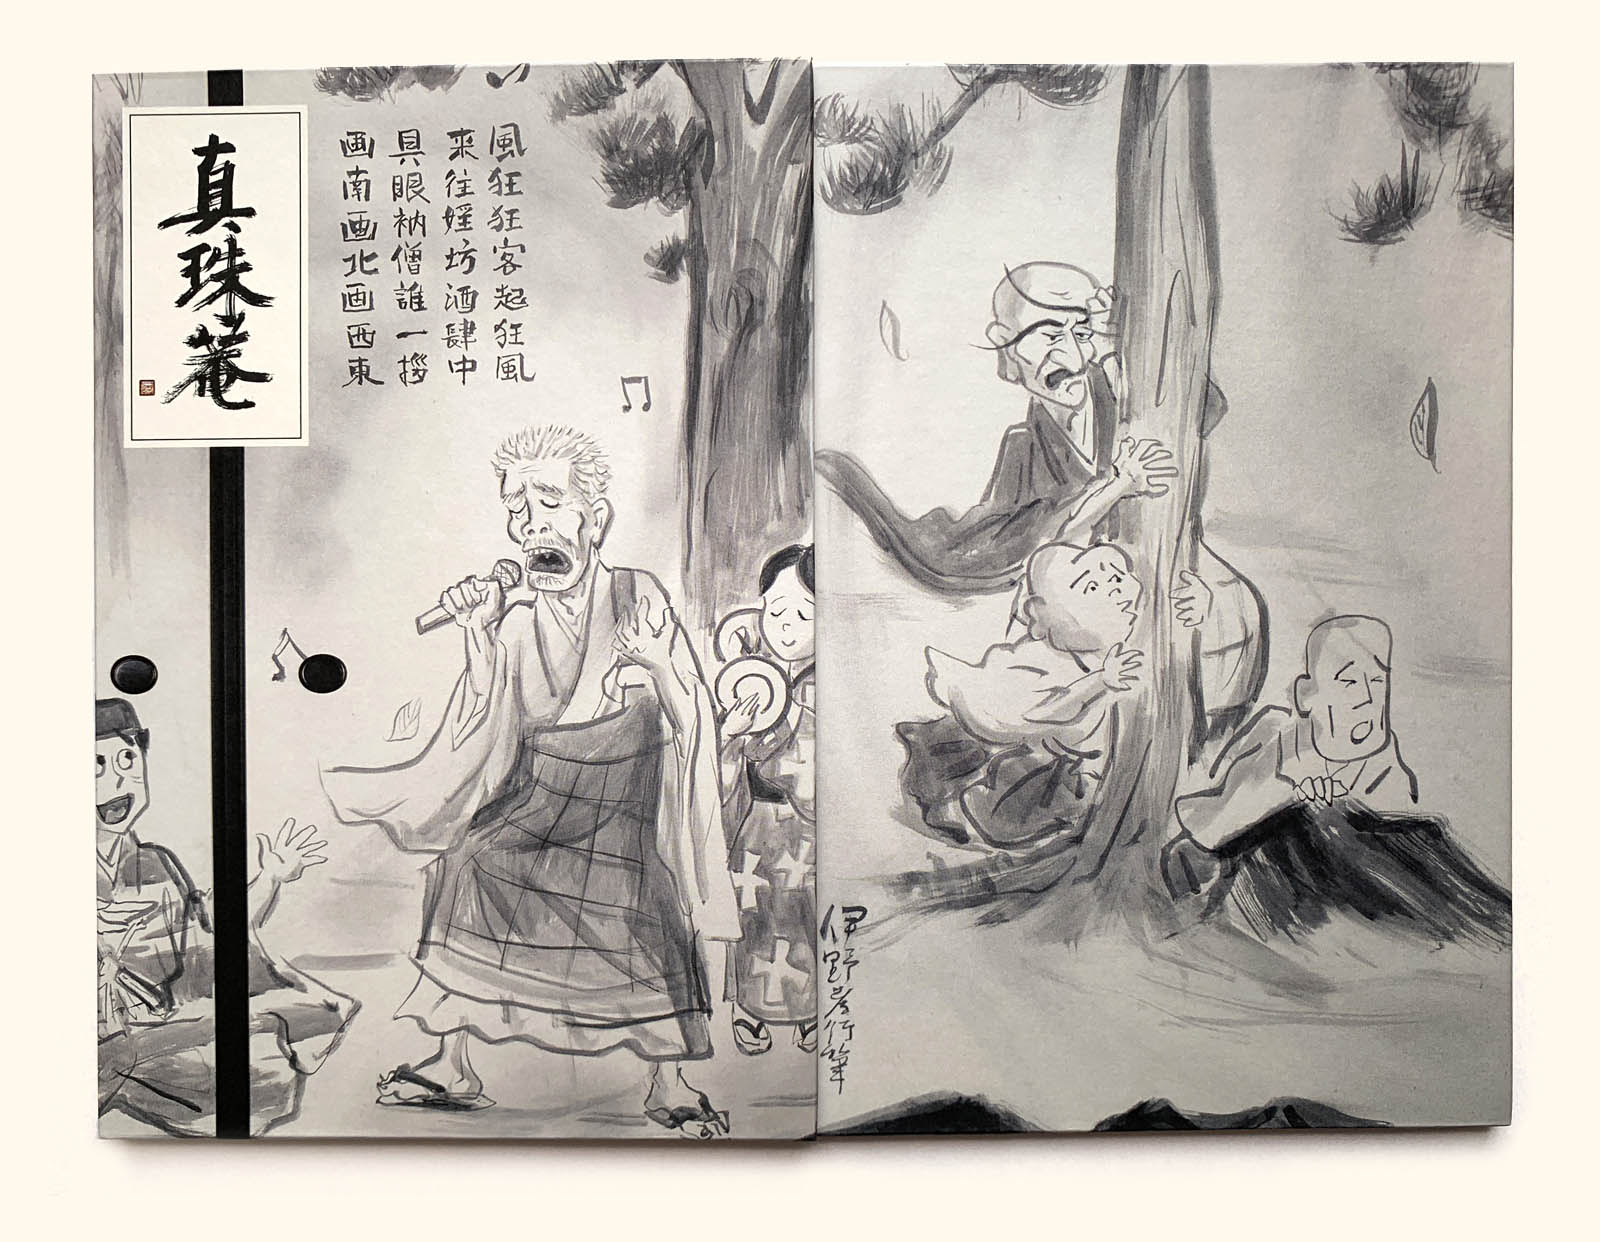 真珠菴
風狂狂客起狂風
来往婬坊酒肆中
具眼衲僧誰一拶
画南画北画西東
伊野孝行筆